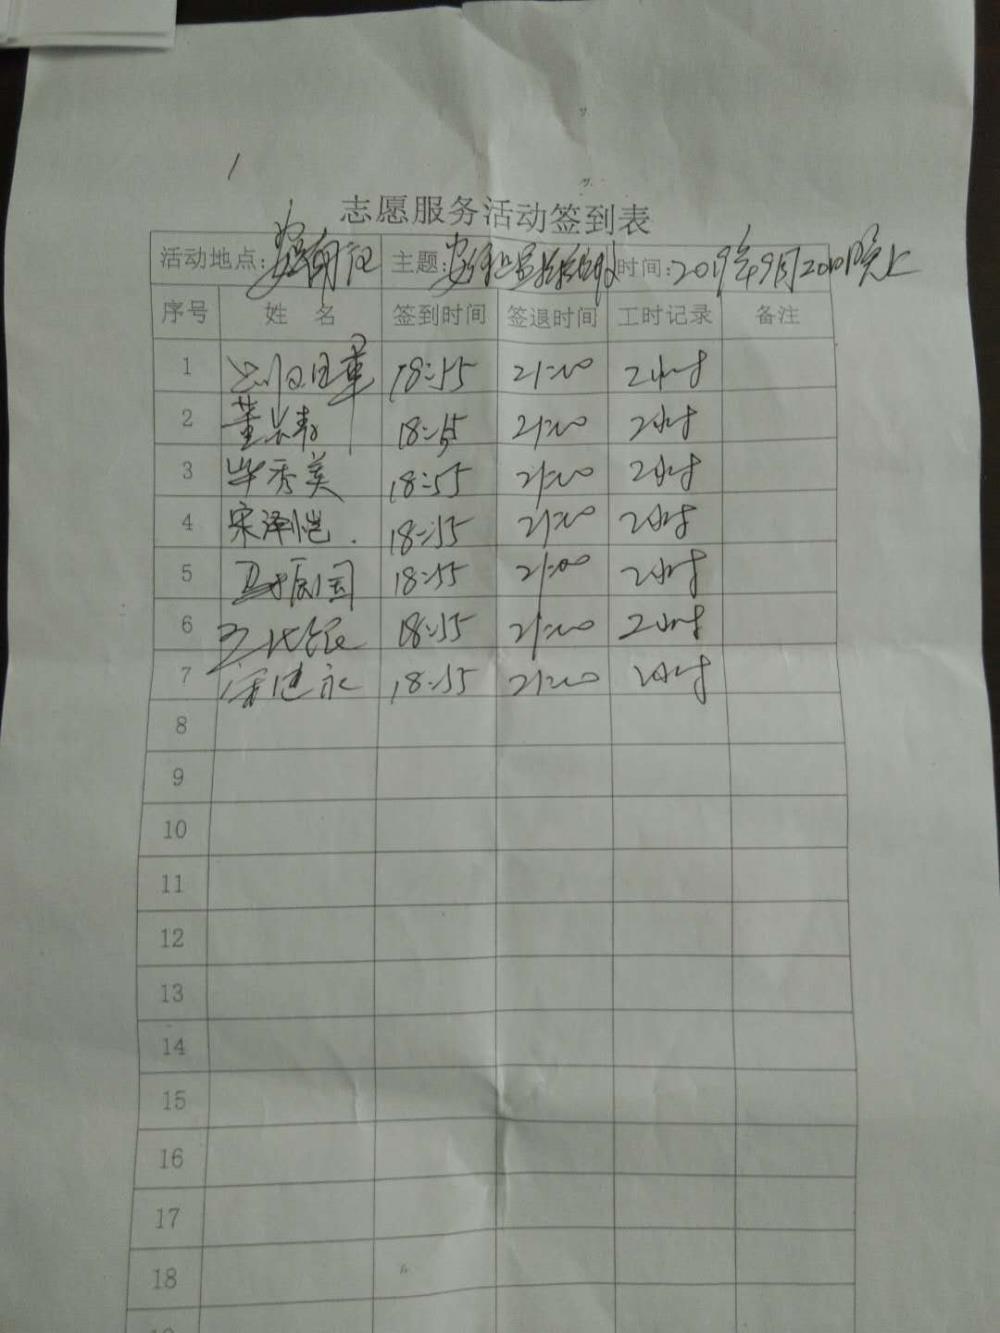 志愿服务活动签到表
活动地点: 主题: 时间:2019年9月20日晚上
序号 姓 名 签到时间 签退时间 工时记录 备注
1 18:55 21:00 2小时
2 董 18:55 21:00 2小时
3 毕秀美 18:55 21:00 2小时
4 宋泽恺 18:55 21:00 2小时
5 国 18:55 21:00 2小时
6 18:55 21:00 2小时
7 宋建永 18:55 21:00 2小时
8
9
10
11
12
13
14
15
16
17
18